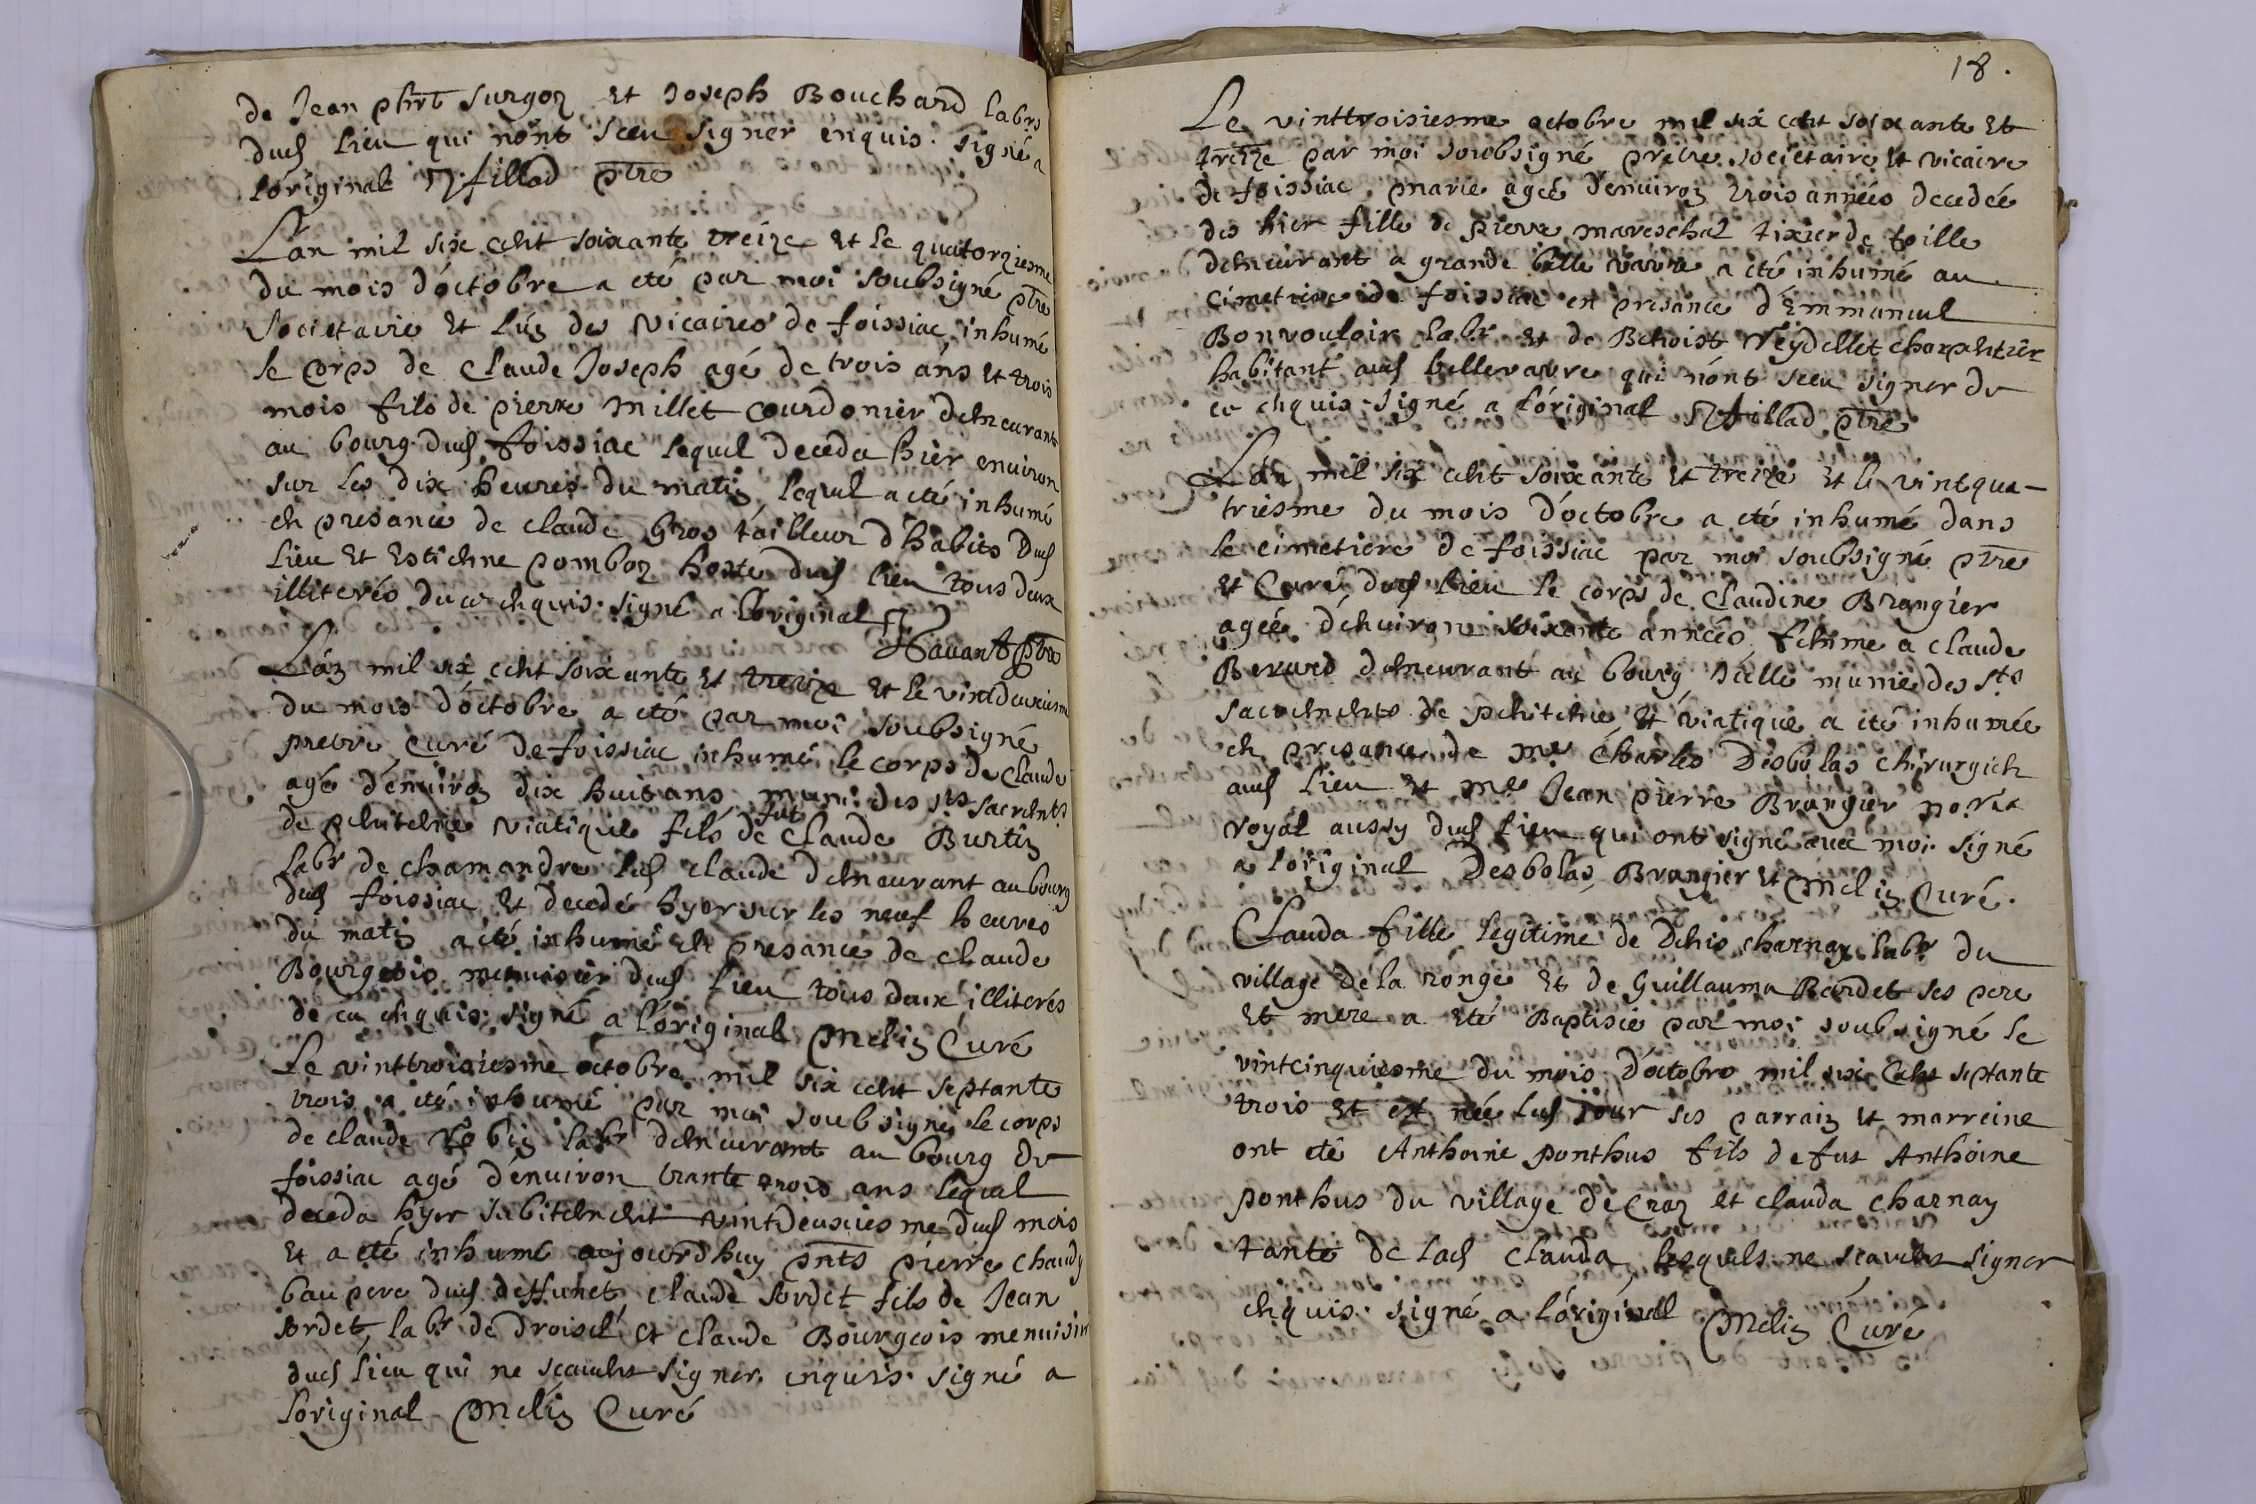 de Jean phrt surgon et Joseph Bouchard labrs
dud lieu qui nónt sceu signer enquis. signé a
l'original fillod ptre
Lan mil six cent soixante treize et le quatorziesme
du mois dóctobre a eté par moi soubsigné ptre
Societaire et lún des vicaires de foissiac inhumé
le corps de Claude Joseph agé de trois áns et trois
mois fils de pierre Millet courdonier demeurant
au bourg dud foissiac lequel deceda hièr environ
sur les dix heures du matin lequel a eté inhumé
en presance de claude Gros tailleur d'habits dud
lieu et Estienne pombon hoste dud lieu tous deux
illiterés du ce enquis. signé a l'original
Havant ptre
Lán mil six cent soixante et treize et le vintdeuxiesme
du mois dóctobre a eté par moi soubsigné
pretre Curé de foissiac inhumé le corps de Claude
agé dénuiron dix huit ans muni des sts sacrents
de penitence viatique fils de fut Claude Burtin
labr de chamandre led claude demeurant au bourg
dud foissiac et decedé hyer sur les neuf heures
du matin a eté inhumé en presance de claude
Bourgeois menuisier dud lieu tous deux illiterés
de ce enquis. signé a l'original Melin Curé
Le vinttroisiesme octobre mil six cent septante
trois a eté inhumé par moi soubsigné le corps
de claude Robin labr demeurant au bourg de
foissiac agé dénuiron trante trois ans lequal
deceda hyer subitement vintdeusiesme dud mois
et a eté inhumé aujourdhuy pnts pierre chaudy
bau pere dud deffunct claude sordet fils de Jean
sordet labr de droisel et claude Bourgeois menuisier
dud lieu qui ne scauent signer enquis. signé a
l'original Melin Curé
18.
Le vinttroisiesme octobre mil six cent soixante et
treize par moi soubsigné prétre societaire et vicaire
de foissiac marie agée dénuiron trois années decedée
des hier fille de pierre mareschal tixier de toille
demeurant a grande belle vavre a eté inhumé au
cimetiere de foissiac en presance d'Emmanuel
Bonvouloir labr et de Benoist Veydellet charpentier
habitant aud bellevavre qui nónt sceu signer de
ce enquis. signé a l'original fillod ptre
Lán mil six cent soixante et treize et le vintqua-
triesme du mois dóctobre a eté inhumé dans
le cimetiere de foissiac par moi soubsigné ptre
et Curé dud lieu le corps de Claudine Brangier
agée dénuiron soixante années femme a claude
Berard demeurant au bourg Icelle munie des sts
sacrements de penitence et viatique a eté inhumée
en presance de Me Charles Desbolas chirurgien
aud lieu et Me Jean pierre Brangier nore
royal aussy dud lieu qui ont signé avec moi signé
a l'original Desbolas Brangier et Melin Curé.
Clauda fille legitime de Denis charnay labr du
village de la ronge et de Guillauma Bardet ses pere
et mere a eté Baptisée par moi soubsigné le
vintcinquiesme du mois dóctobre mil six cent septante
trois et est née led jour ses parrain et marreine
ont eté Anthoine ponthus fils de fut Anthoine
ponthus du village de Craz et clauda charnay
tante de lad Clauda lesquels ne scauent signer
enquis. signé a l'original Melin Curé